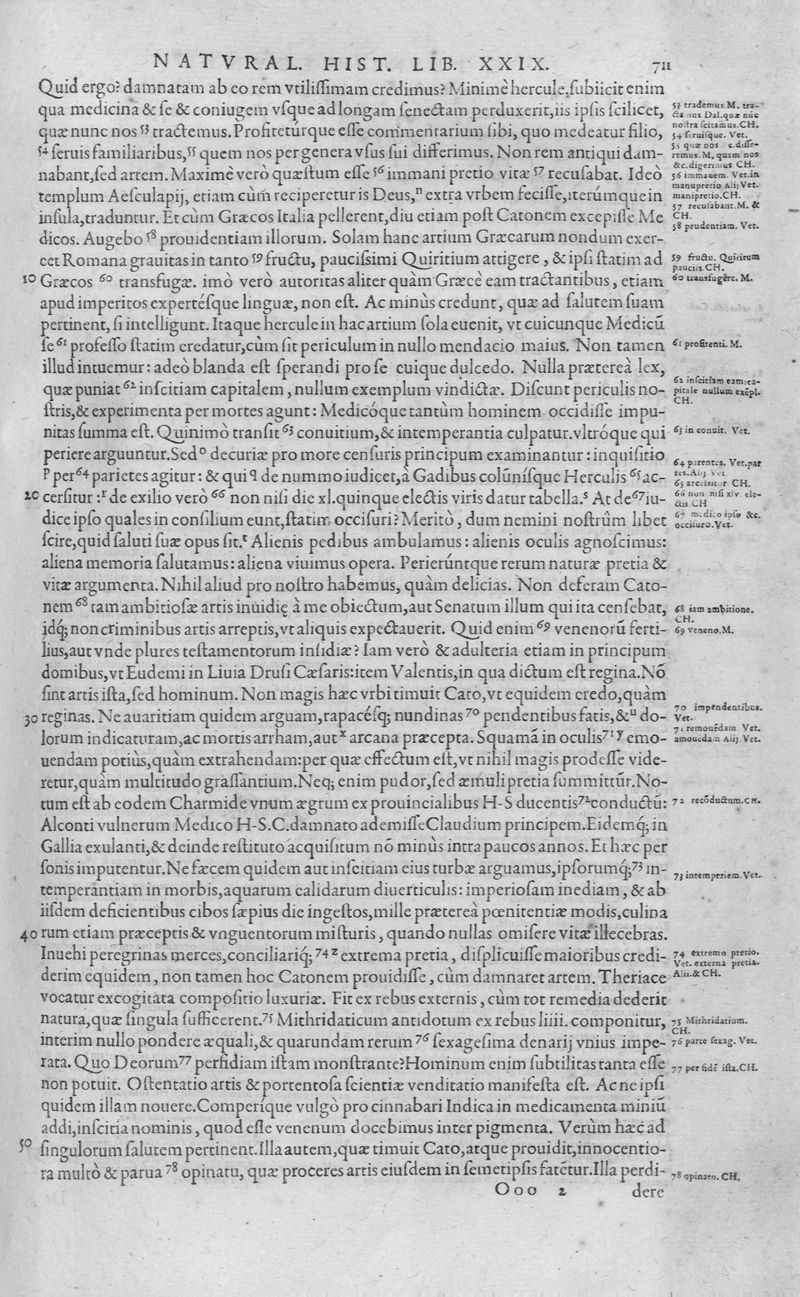 NATVRAL. HIST. LIB. XXIX. 711
Quid ergo? damnatam ab eo rem vtilissimam credimus? Minimè hercule, subiicit enim
qua medicina & se & coniugem vsque ad longam senectam perduxerit, iis ipsis scilicet,
quæ nunc nos 53 tractemus. Profiteturque esse commentarium sibi, quo medeatur filio,
54 seruis familiaribus, 55 quem nos per genera vsus sui differimus. Non rem antiqui dam-
nabant, sed artem. Maximè verò quæstum esse 56 immani pretio vitæ 57 recusabat. Ideò
templum Aesculapij, etiam cùm reciperetur is Deus, n extra vrbem fecisse, iterúmque in
insula, traduntur. Et cùm Græcos Italia pellerent, diu etiam post Catonem excepisse Me
dicos. Augebo 58 prouidentiam illorum. Solam hanc artium Græcarum nondum exer-
cet Romana grauitas in tanto 59 fructu, paucissimi Quiritium attigere, & ipsi statim ad
10 Græcos 60 transfugæ. imò verò autoritas aliter quàm Græcè eam tractantibus, etiam
apud imperitos expertésque linguæ, non est. Ac minùs credunt, quæ ad salutem suam
pertinent, si intelligunt. Itaque hercule in hac artium sola euenit, vt cuicunque Medicū
se 61 professo statim credatur, cùm sit periculum in nullo mendacio maius. Non tamen
illud intuemur: adeò blanda est sperandi pro se cuique dulcedo. Nulla præterea lex,
quæ puniat 62 inscitiam capitalem, nullum exemplum vindictæ. Discunt periculis no-
stris, & experimenta per mortes agunt: Medicóque tantùm hominem occidisse impu-
nitas summa est. Quinimò transit 63 conuitium, & intemperantia culpatur. vltróque qui
periere arguuntur. Sed o decuriæ pro more censuris principum examinantur: inquisitio
p per 64 parietes agitur: & qui q de nummo iudicet, à Gadibus colūnisque Herculis 65 ac-
20 cersitur: r de exilio verò 66 non nisi die xl. quinque electis viris datur tabella. s At de 67 iu-
dice ipso quales in consilium eunt, statim occisuri? Meritò, dum nemini nostrûm libet
scire, quid saluti suæ opus sit. t Alienis pedibus ambulamus: alienis oculis agnoscimus:
aliena memoria salutamus: aliena viuimus opera. Perierúntque rerum naturæ pretia &
vitæ argumenta. Nihil aliud pro nostro habemus, quàm delicias. Non deseram Cato-
nem 68 tam ambitiosæ artis inuidię à me obiectum, aut Senatum illum qui ita censebat,
jdq; non criminibus artis arreptis, vt aliquis expectauerit. Quid enim 69 venenorū ferti-
lius, aut vnde plures testamentorum insidiæ? Iam verò & adulteria etiam in principum
domibus, vt Eudemi in Liuia Drusi Cæsaris: item Valentis, in qua dictum est regina. Nō
sint artis ista, sed hominum. Non magis hæc vrbi timuit Cato, vt equidem credo, quàm
30 reginas. Ne auaritiam quidem arguam, rapacésq; nundinas 70 pendentibus fatis, & u do-
lorum indicaturam, ac mortis arrham, aut x arcana præcepta. Squamā in oculis 71 y emo-
uendam potiùs, quàm extrahendam: per quæ effectum est, vt nihil magis prodesse vide-
retur, quàm multitudo grassantium. Neq; enim pudor, sed æmuli pretia summittūr. No-
tum est ab eodem Charmide vnum ægrum ex prouincialibus H-S ducentis 72 conductū:
Alconti vulnerum Medico H-S. C. damnato ademisse Claudium principem. Eidemq́; in
Gallia exulanti, & deinde restituto acquisitum nō minùs intra paucos annos. Et hæc per
sonis imputentur. Ne fæcem quidem aut inscitiam eius turbæ arguamus, ipsorumq́; 73 in-
temperantiam in morbis, aquarum calidarum diuerticulis: imperiosam inediam, & ab
iisdem deficientibus cibos sæpius die ingestos, mille præterea pœnitentiæ modis, culina
40 rum etiam præceptis & vnguentorum misturis, quando nullas omisere vitæ illecebras.
Inuehi peregrinas merces, conciliariq́; 74 z extrema pretia, displicuisse maioribus credi-
derim equidem, non tamen hoc Catonem prouidisse, cùm damnaret artem. Theriace
vocatur excogitata compositio luxuriæ. Fit ex rebus externis, cùm tot remedia dederit
natura, quæ singula sufficerent. 75 Mithridaticum antidotum ex rebus liiii. componitur,
interim nullo pondere æquali, & quarundam rerum 76 sexagesima denarij vnius impe-
rata. Quo Deorum 77 perfidiam istam monstrante? Hominum enim subtilitas tanta esse
non potuit. Ostentatio artis & portentosa scientiæ venditatio manifesta est. Ac ne ipsi
quidem illam nouere. Comperíque vulgò pro cinnabari Indica in medicamenta miniū
addi, inscitia nominis, quod esse venenum docebimus inter pigmenta. Verùm hæc ad
50 singulorum salutem pertinent. Illa autem, quæ timuit Cato, atque prouidit, innocentio-
ra multò & parua 78 opinatu, quæ proceres artis eiusdem in semetipsis fatētur. Illa perdi-
Ooo 2 dere
53 trademus. M. tra-
ctamus Dal. quæ nūc
nostra scitamus. CH.
54 seruisque. Vet.
55 quæ nos
remus. M. quem nos
&c. digerimus. CH.
56 immanem. Vet. in
manupretio. Alij Vet.
manipretio. CH.
57 recusabant. M. &
CH.
58 prudentiam. Vet.
59 fructu. Quiritum
paucis. CH.
60 transfugêre. M.
61 profitenti. M.
62 inscitiam eam: ca-
pitale nullum exēpl.
CH.
63 in conuit. Vet.
64 parentes. Vet. par
tes. Alij Vet.
65 arcessitur CH.
66 non nisi xlv. ele-
ctis CH
67 medico ipso &c.
occisuro. Vet.
68 iam ambitione.
CH.
69 veneno. M.
70 impendentibus.
Vet.
71 remouēdam Vet.
amouedam Alij. Vet.
72 recōductum. CH.
73 intemperiem. Vet.
74 extremo pretio.
Vet. externa pretia.
Alii. & CH.
75 Mithridatium.
CH.
76 parte sexag. Vet.
77 per fidē ista. CH.
78 opinato. CH.